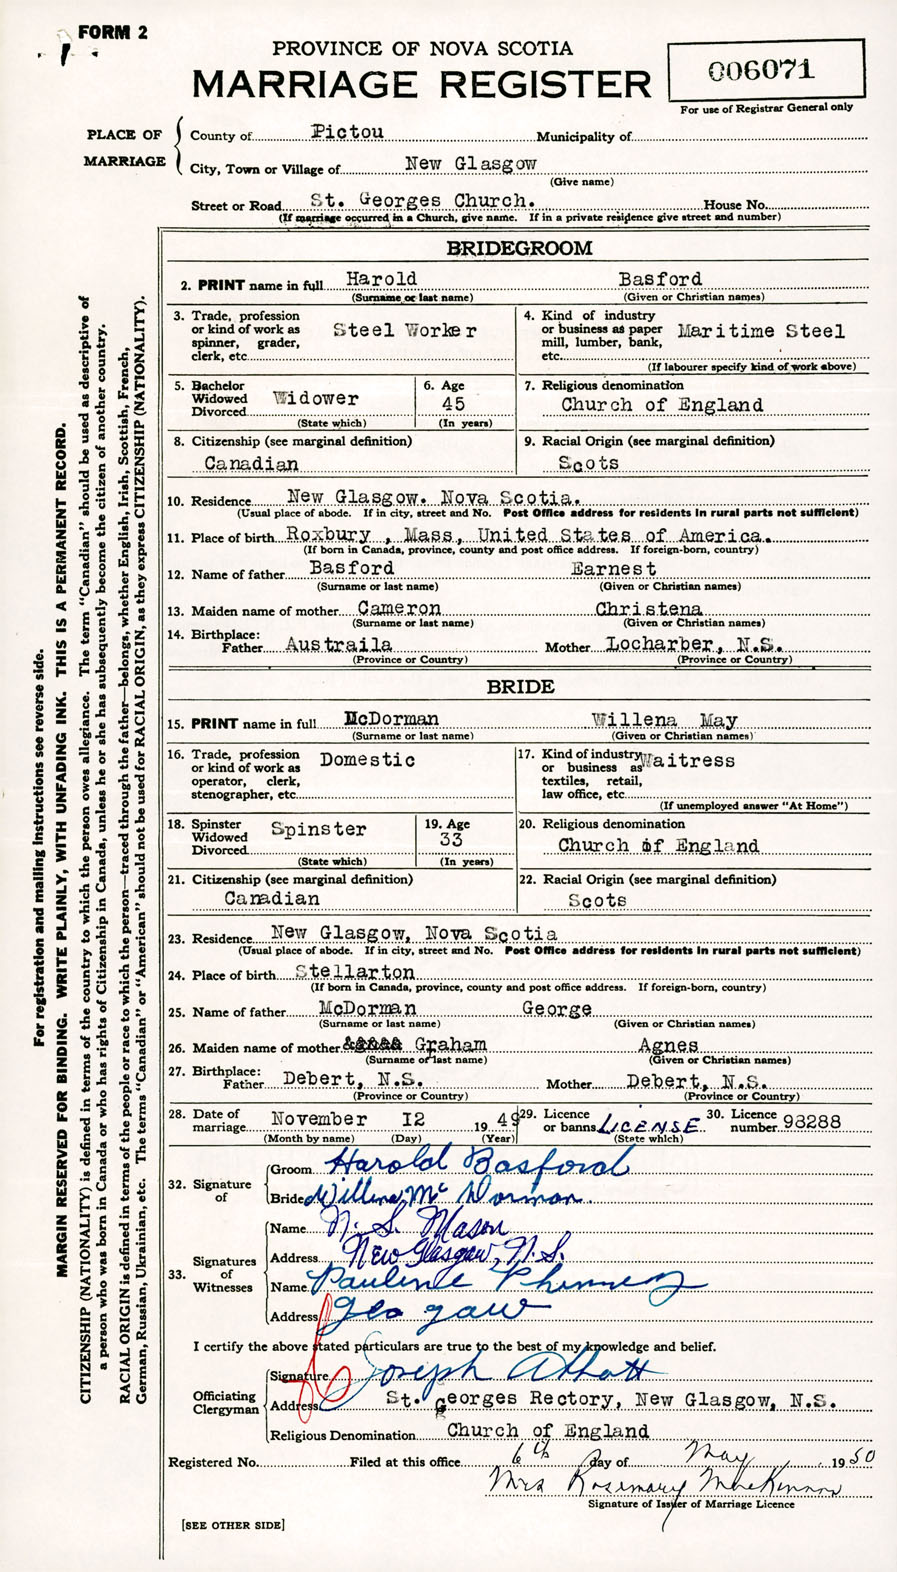 FORM 2
PROVINCE OF NOVA SCOTIA
MARRIAGE REGISTER
006071
For use of Registrar General only
PLACE OF MARRIAGE
County of Pictou Municipality of
City, Town or Village of New Glasgow
(Give name)
Street or Road St. Georges Church. House No.
(If marriage occurred in a Church, give name. If in a private residence give street and number)
BRIDEGROOM
2. PRINT name in full Harold Basford
(Surname or last name) (Given or Christian names)
3. Trade, profession or kind of work as spinner, grader, clerk, etc. Steel Worker
4. Kind of industry or business as paper mill, lumber, bank, etc. Maritime Steel
(If labourer specify kind of work above)
5. Bachelor Widowed Divorced Widower
(State which)
6. Age 45
(In years)
7. Religious denomination
Church of England
8. Citizenship (see marginal definition)
Canadian
9. Racial Origin (see marginal definition)
Scots
10. Residence New Glasgow. Nova Scotia.
(Usual place of abode. If in city, street and No. Post Office address for residents in rural parts not sufficient)
11. Place of birth Roxbury , Mass, United States of America.
(If born in Canada, province, county and post office address. If foreign-born, country)
12. Name of father Basford Earnest
(Surname or last name) (Given or Christian names)
13. Maiden name of mother Cameron Christena
(Surname or last name) (Given or Christian names)
14. Birthplace:
Father Austraila Mother Locharber, N.S.
(Province or Country) (Province or Country)
BRIDE
15. PRINT name in full McDorman Willena May
(Surname or last name) (Given or Christian names)
16. Trade, profession or kind of work as operator, clerk, stenographer, etc. Domestic
17. Kind of industry or business as textiles, retail, law office, etc. Waitress
(If unemployed answer "At Home")
18. Spinster Widowed Divorced Spinster
(State which)
19. Age 33
(In years)
20. Religious denomination
Church of England
21. Citizenship (see marginal definition)
Canadian
22. Racial Origin (see marginal definition)
Scots
23. Residence New Glasgow, Nova Scotia
(Usual place of abode. If in city, street and No. Post Office address for residents in rural parts not sufficient)
24. Place of birth Stellarton
(If born in Canada, province, county and post office address. If foreign-born, country)
25. Name of father McDorman George
(Surname or last name) (Given or Christian names)
26. Maiden name of mother Graham Agnes
(Surname or last name) (Given or Christian names)
27. Birthplace:
Father Debert, N.S. Mother Debert, N.S.
(Province or Country) (Province or Country)
28. Date of marriage November I2 1949
(Month by name) (Day) (Year)
29. Licence or banns LICENSE
(State which)
30. Licence number 98288
32. Signature of
Groom Harold Basford
Bride Willena Mc Dorman
33. Signatures of Witnesses
Name N. S. Mason
Address New Glasgow, N.S.
Name Pauline Phinney
Address Glasgaw
I certify the above stated particulars are true to the best of my knowledge and belief.
Officiating Clergyman
Signature Joseph Abbott
Address St. Georges Rectory, New Glasgow, N.S.
Religious Denomination Church of England
Registered No. Filed at this office 6th day of May 1950
Mrs Rosemary MacKinnon
Signature of Issuer of Marriage Licence
[SEE OTHER SIDE]
For registration and mailing instructions see reverse side.
MARGIN RESERVED FOR BINDING. WRITE PLAINLY, WITH UNFADING INK. THIS IS A PERMANENT RECORD.
CITIZENSHIP (NATIONALITY) is defined in terms of the country to which the person owes allegiance. The term "Canadian" should be used as descriptive of
a person who was born in Canada or who has rights of Citizenship in Canada, unless he or she has subsequently become the citizen of another country.
RACIAL ORIGIN is defined in terms of the people or race to which the person—traced through the father—belongs, whether English, Irish, Scottish, French,
German, Russian, Ukrainian, etc. The terms "Canadian" or "American" should not be used for RACIAL ORIGIN, as they express CITIZENSHIP (NATIONALITY).